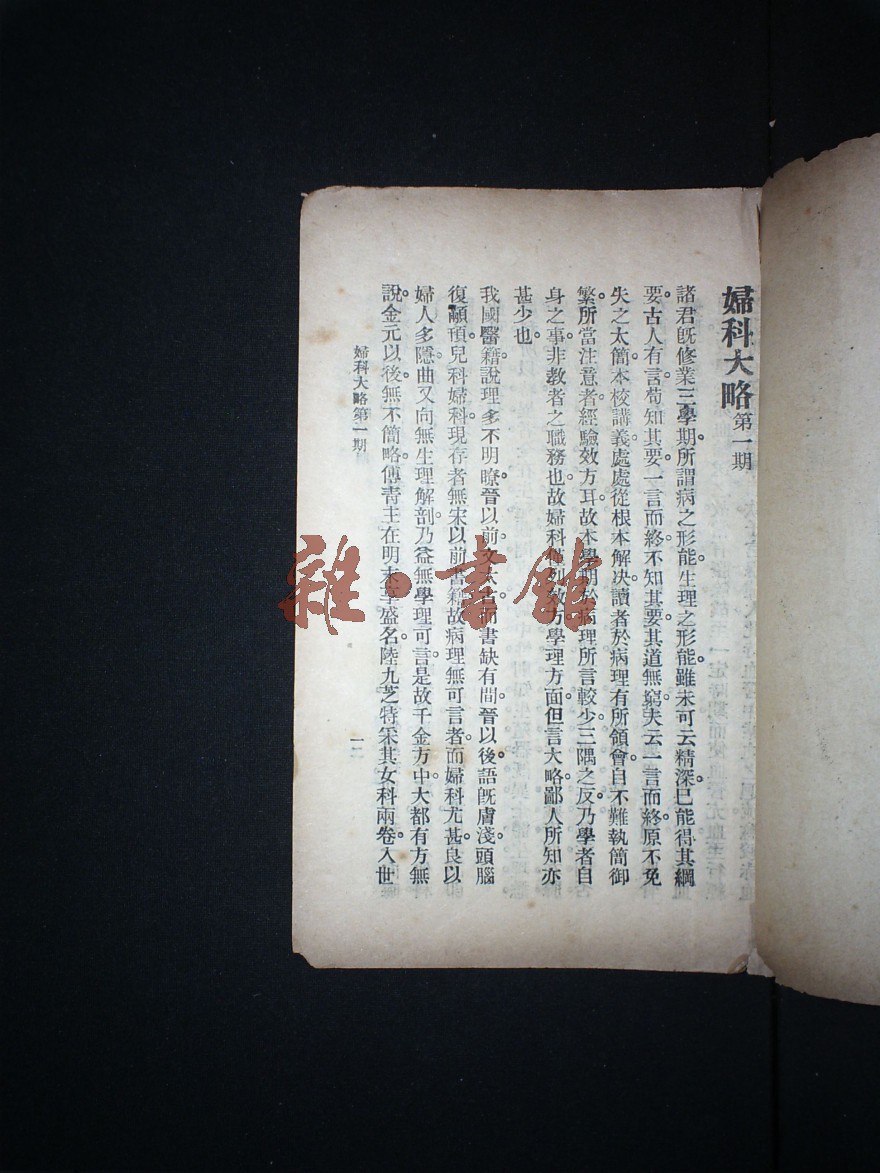 婦科大略第一期
諸君旣修業三學期。所謂病之形能生理之形能。雖未可云精深。已能得其綱
要。古人有言。苟知其要。一言而終。不知其要。其道無窮。夫云一言而終。原不免
失之太簡。本校講義處處從根本解決。讀者於病理有所領會。自不難執簡御
繁。所當注意者。經驗效方耳。故本學期於病理所言較少。三隅之反。乃學者自
身之事。非教者之職務也。故婦科僅列效方。學理方面但言大略。鄙人所知亦
甚少也。
我國醫籍說理多不明瞭。晉以前文太古。而書缺有間。晉以後語旣膚淺。頭腦
復顢頇。兒科婦科現存者無宋以前書籍。故病理無可言者。而婦科尤甚。良以
婦人多隱曲。又向無生理解剖。乃益無學理可言。是故千金方中大都有方無
說。金元以後。無不簡略。傅青主在明末享盛名。陸九芝特采其女科兩卷入世
婦科大略第一期
一
雜·書館